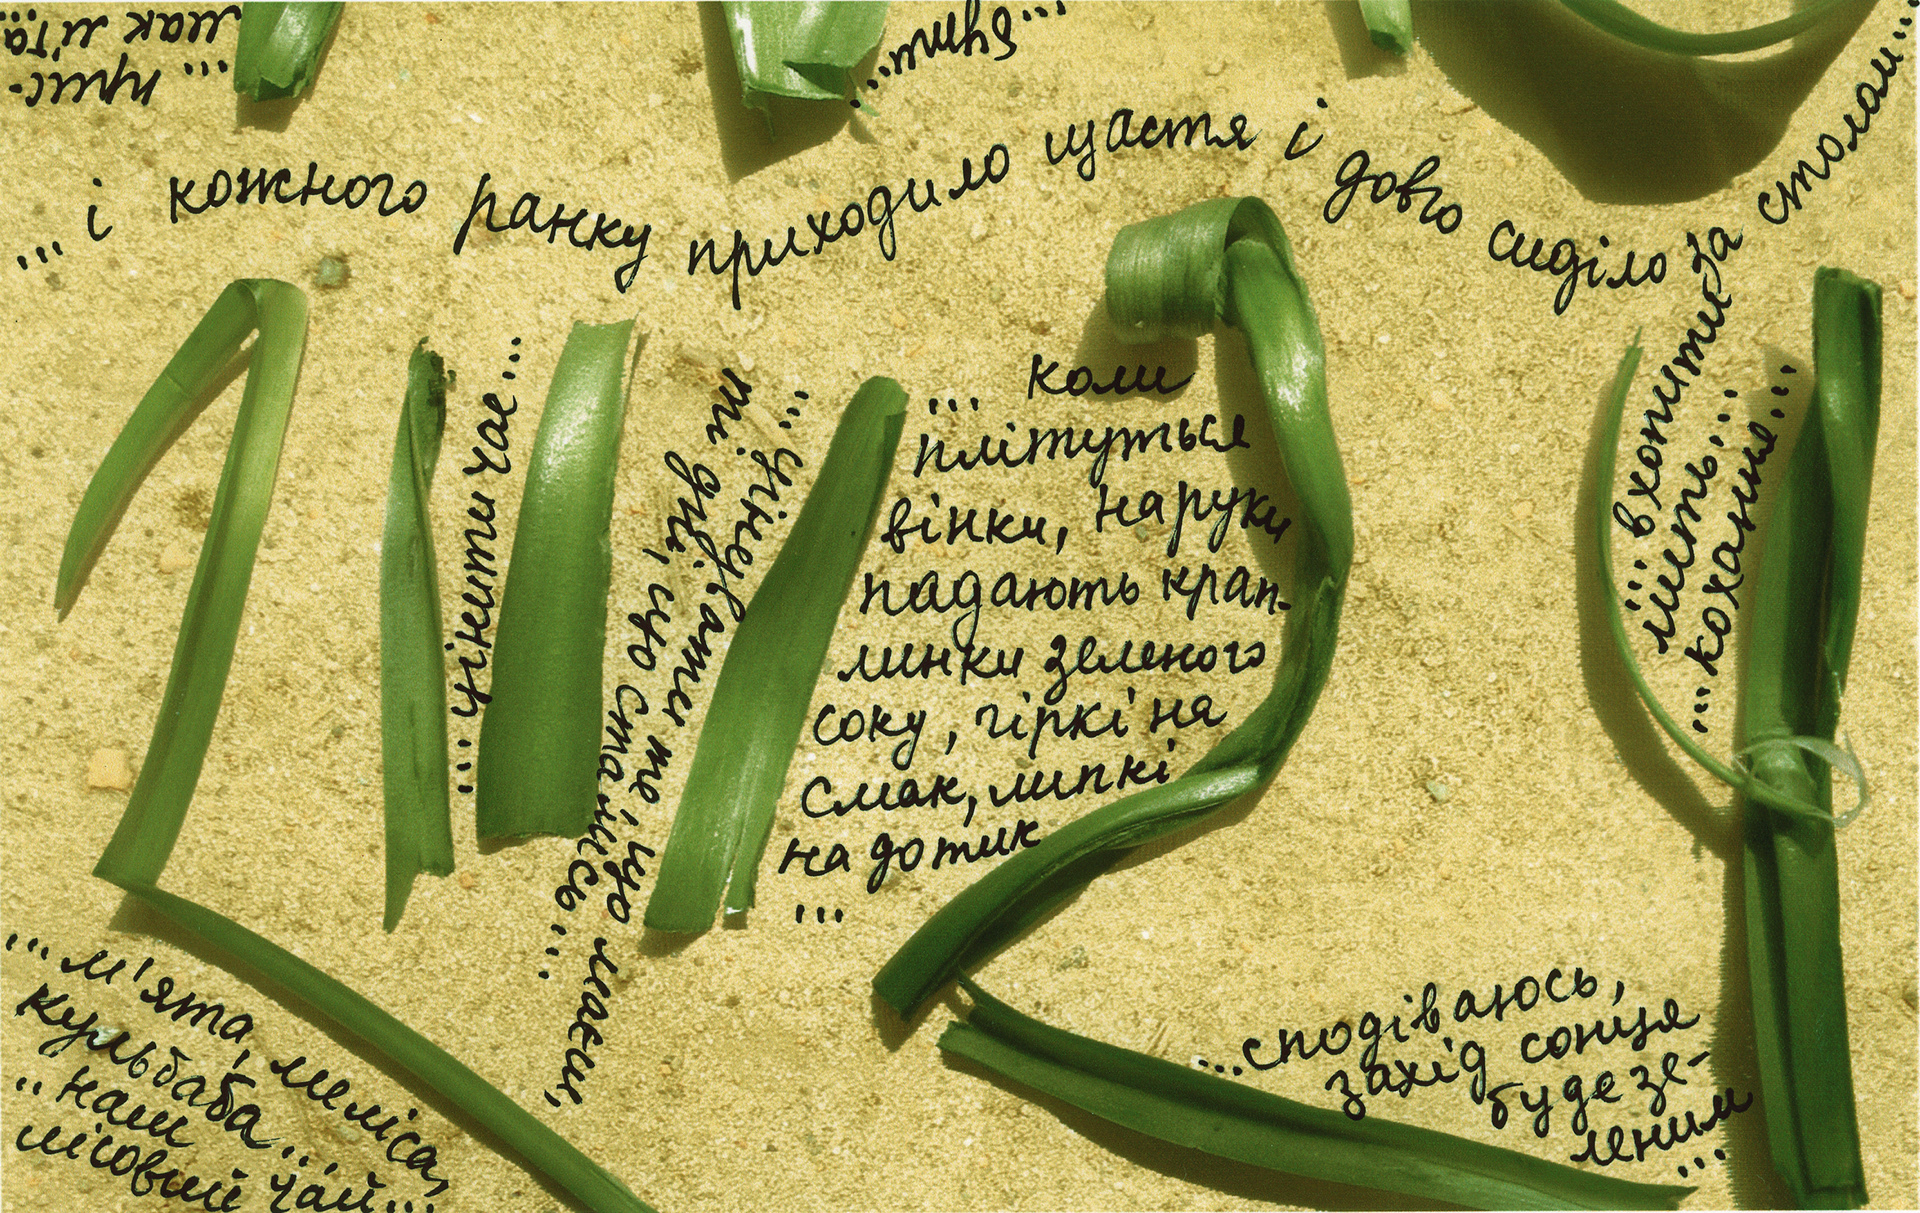 ...прис-
...і кожного ранку приходило щастя і довго сиділо за столом...
...цінити час...
...цінувати те, що маєш,
ті дні, що стались...
... коли
плітуться
вінки, на руки
падають крап-
линки зеленого
соку, гіркі на
смак, липкі
на дотик
...
...вхопити
мить...
...кохання...
...м'ята, меліса,
кульбаба...
..наш
лісовий чай...
...сподіваюсь,
захід сонця
буде зе-
леним
...